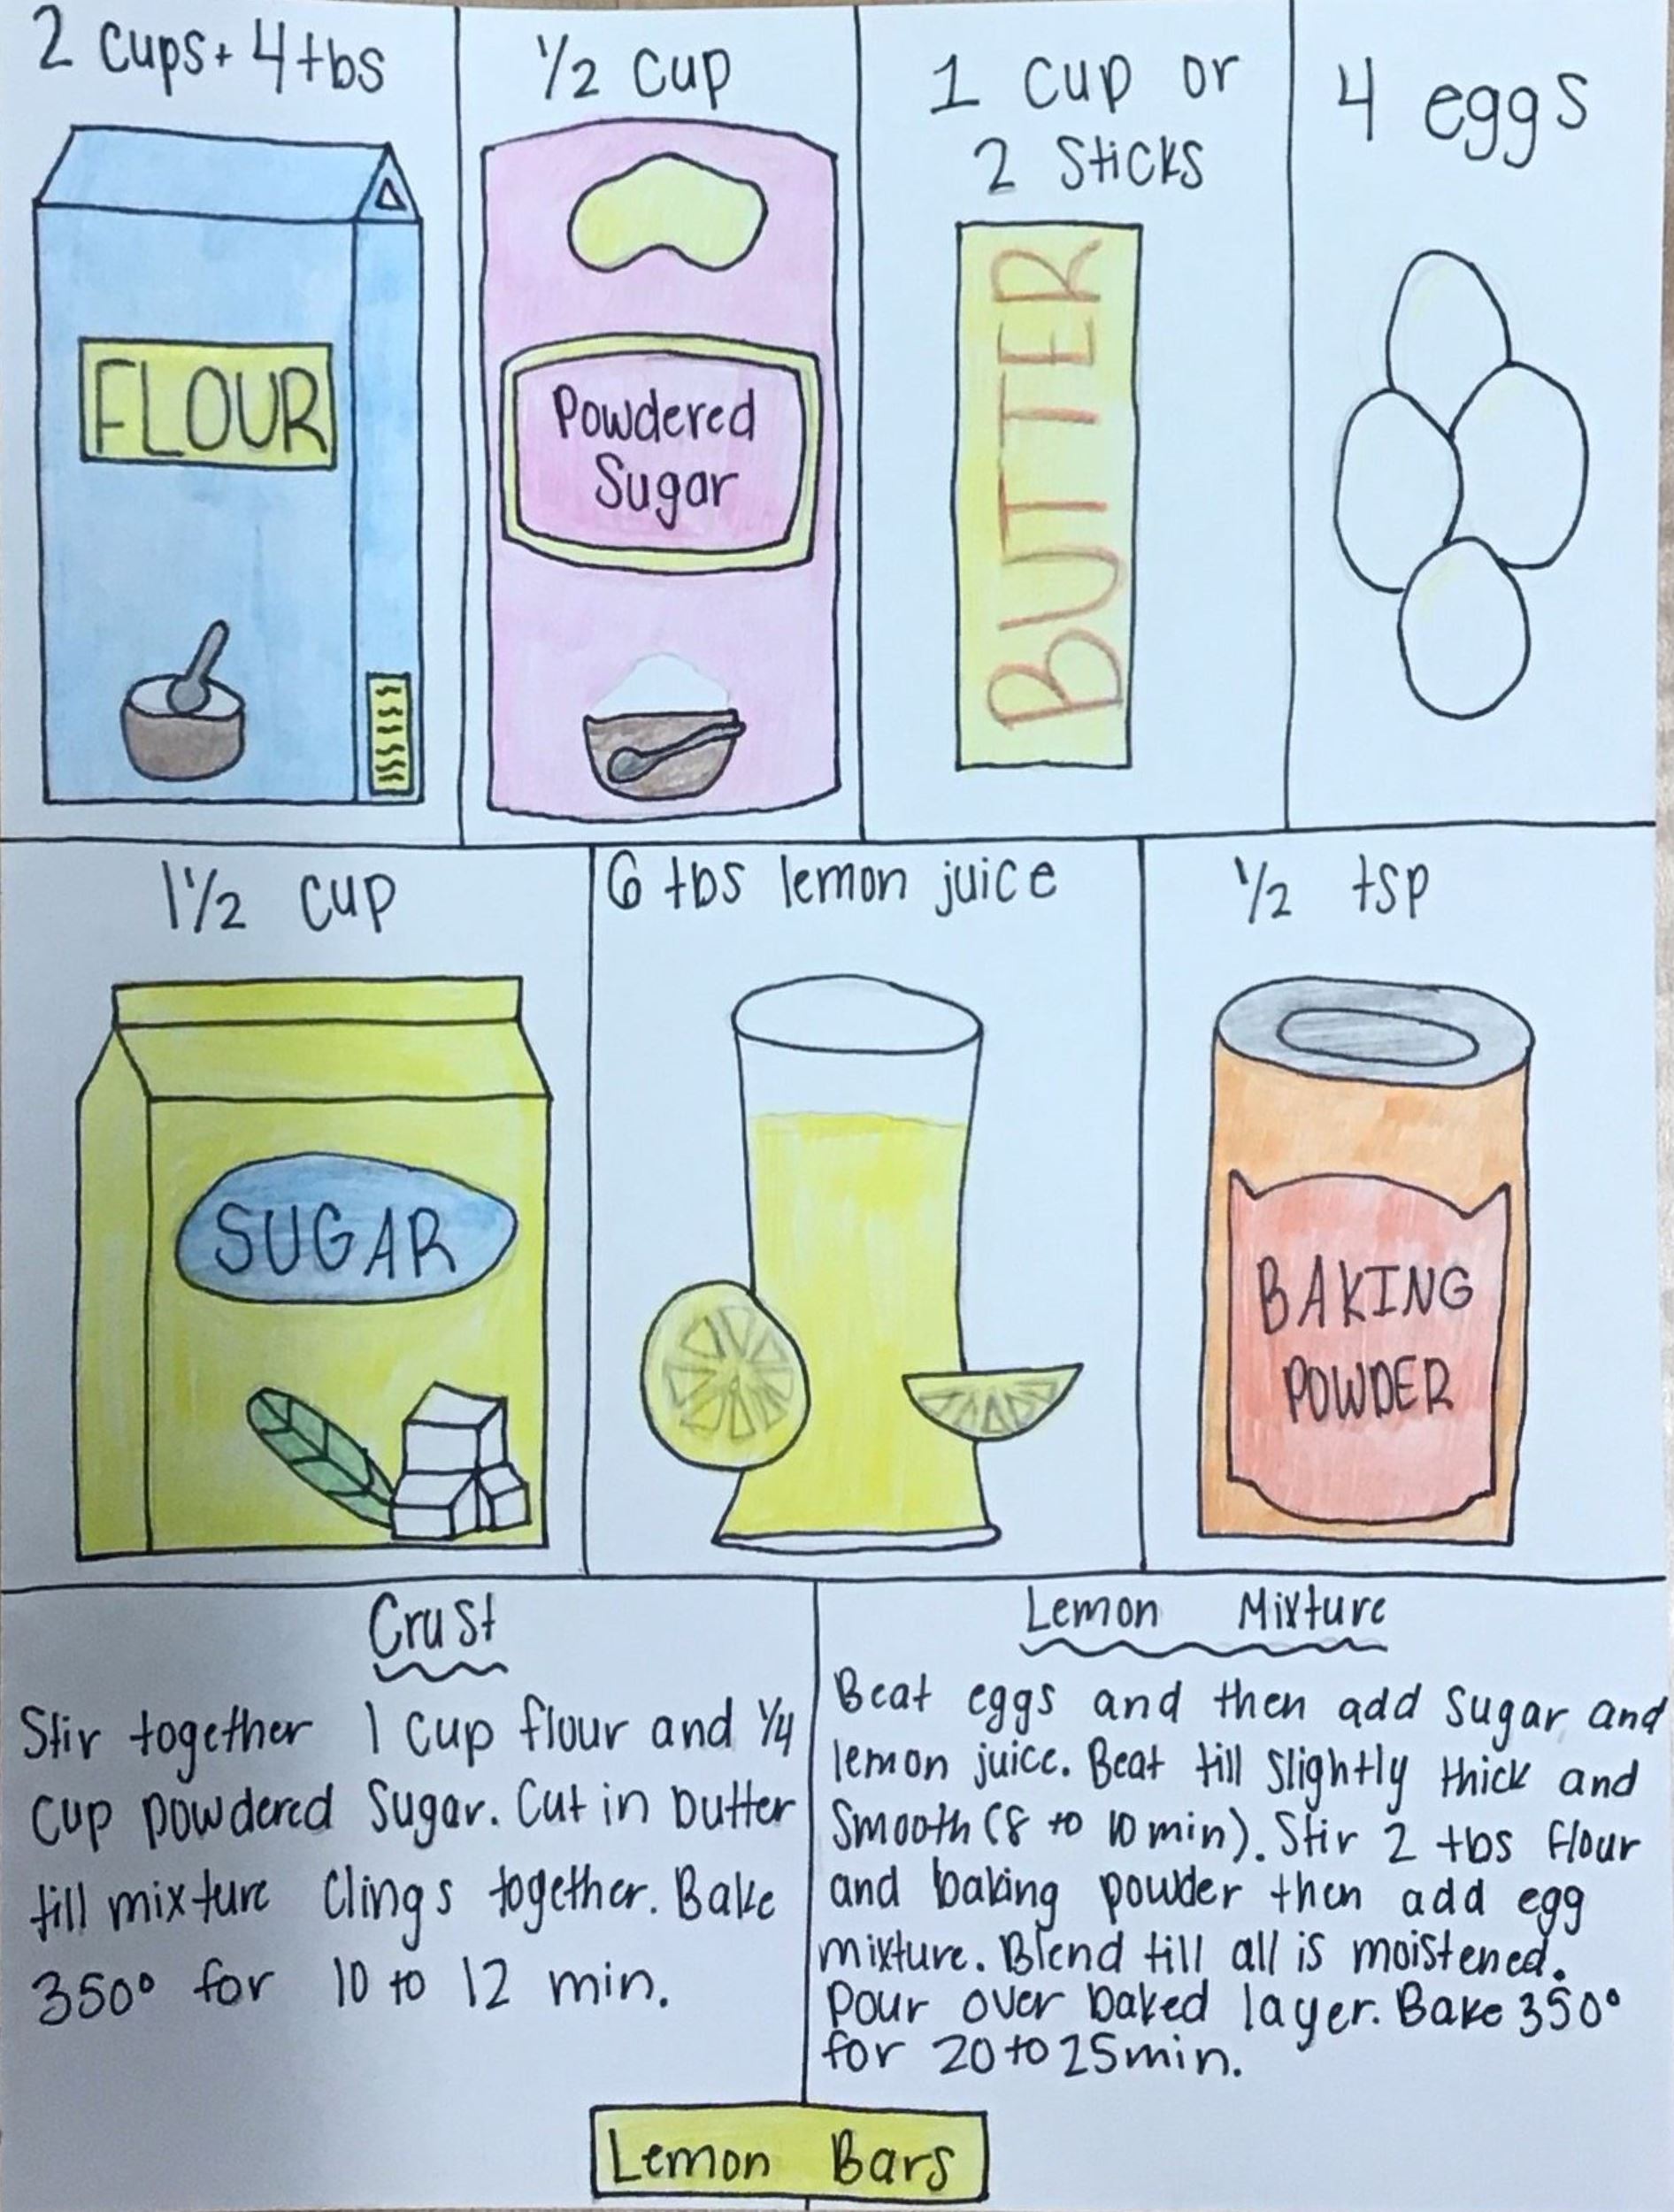 2 cups + 4 tbs
FLOUR
1/2 cup
Powdered
Sugar
1 cup or
2 sticks
BUTTER
4 eggs
1 1/2 cup
SUGAR
6 tbs lemon juice
1/2 tsp
BAKING
POWDER
Crust
Stir together 1 cup flour and 1/4
cup powdered sugar. Cut in butter
till mixture clings together. Bake
350° for 10 to 12 min.
Lemon Mixture
Beat eggs and then add sugar and
lemon juice. Beat till slightly thick and
smooth (8 to 10 min). Stir 2 tbs flour
and baking powder then add egg
mixture. Blend till all is moistened.
Pour over baked layer. Bake 350°
for 20 to 25 min.
Lemon Bars